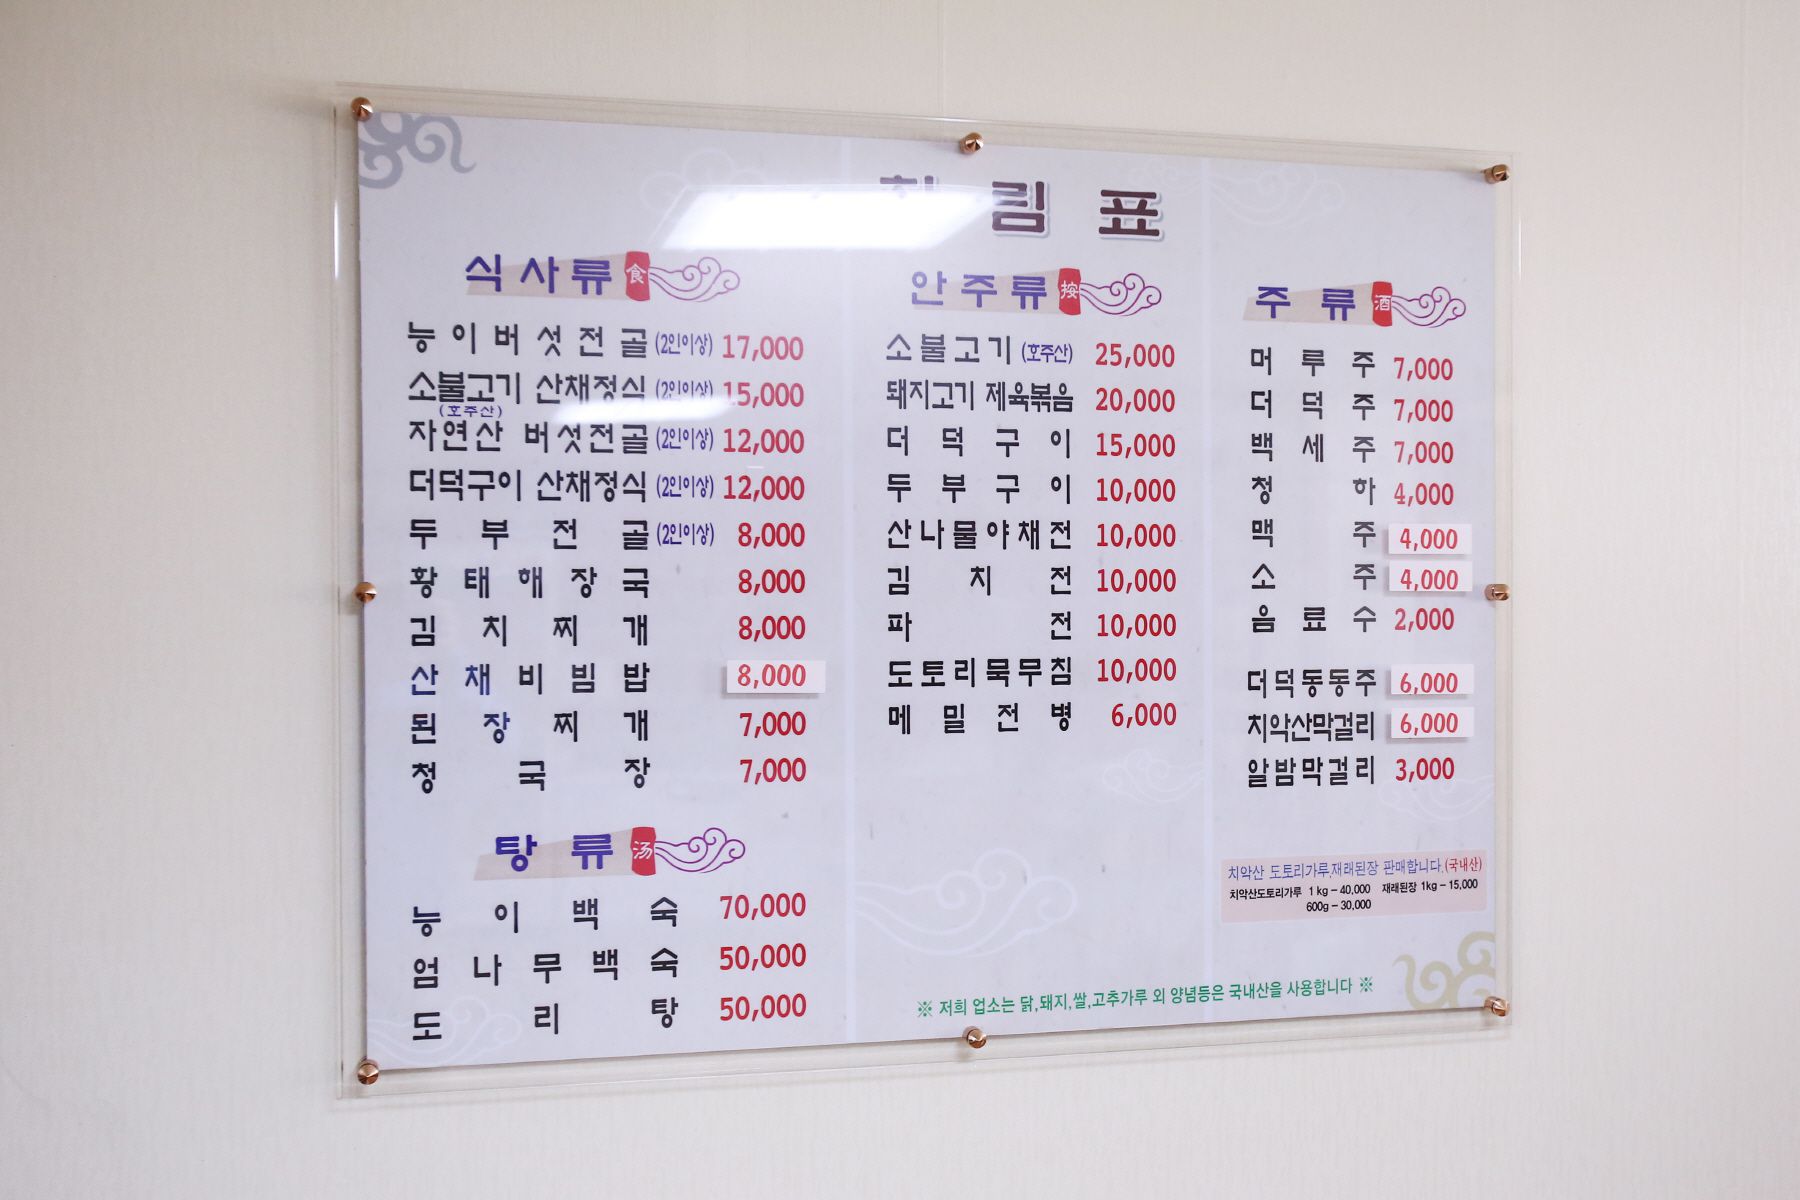 림 표
식사류 食
능이버섯전골 (2인이상) 17,000
소불고기 산채정식 (2인이상) 15,000
(호주산)
자연산 버섯전골 (2인이상) 12,000
더덕구이 산채정식 (2인이상) 12,000
두부전골 (2인이상) 8,000
황태해장국 8,000
김치찌개 8,000
산채비빔밥 8,000
된장찌개 7,000
청국장 7,000
탕류 汤
능이백숙 70,000
엄나무백숙 50,000
도리탕 50,000
안주류 按
소불고기 (호주산) 25,000
돼지고기 제육볶음 20,000
더덕구이 15,000
두부구이 10,000
산나물야채전 10,000
김치전 10,000
파전 10,000
도토리묵무침 10,000
메밀전병 6,000
주류 酒
머루주 7,000
더덕주 7,000
백세주 7,000
청하 4,000
맥주 4,000
소주 4,000
음료수 2,000
더덕동동주 6,000
치악산막걸리 6,000
알밤막걸리 3,000
치악산 도토리가루,재래된장 판매합니다.(국내산)
치악산도토리가루 1kg – 40,000 재래된장 1kg – 15,000
600g – 30,000
※ 저희 업소는 닭,돼지,쌀,고추가루 외 양념등은 국내산을 사용합니다 ※